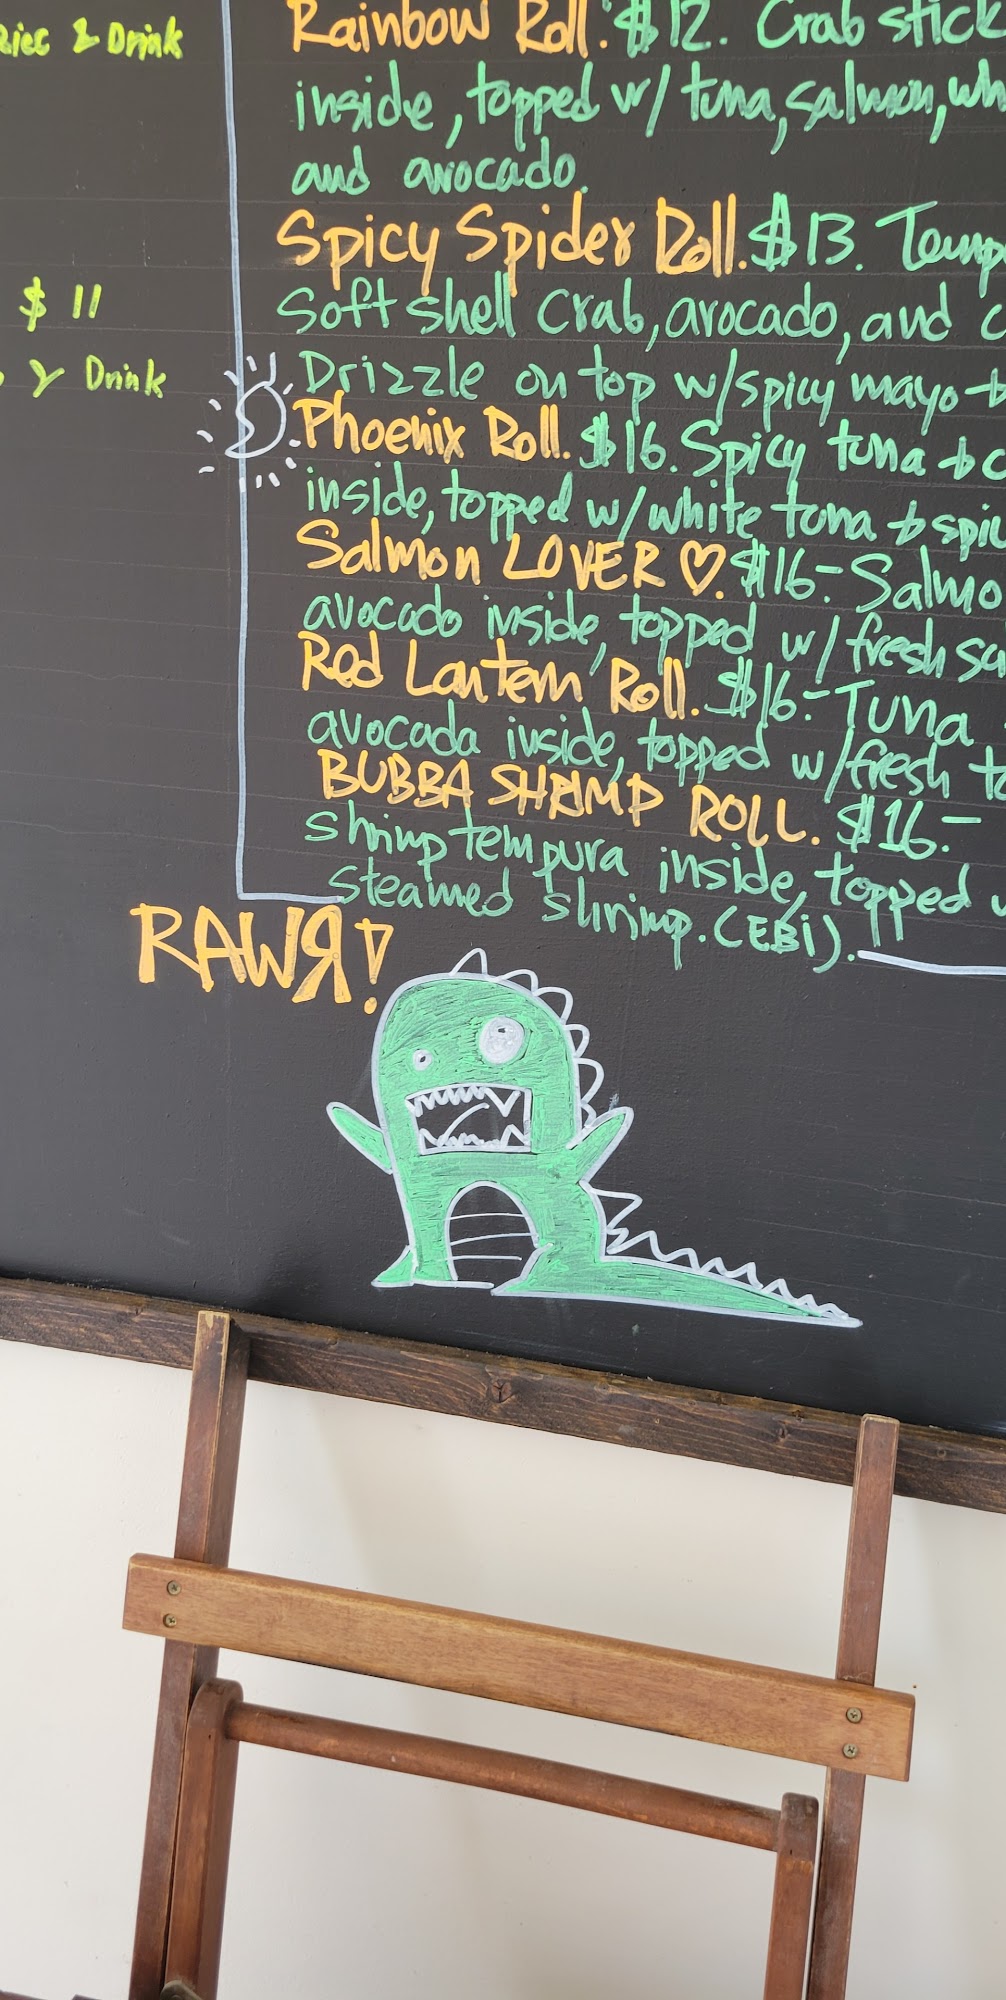 & Drink
$ 11
& Drink
Rainbow Roll. $12. Crab stick
inside, topped w/ tuna, salmon,
and avocado.
Spicy Spider Roll. $13.
Soft shell crab, avocado, and
Drizzle on top w/spicy mayo &
Phoenix Roll. $16. Spicy tuna &
inside, topped w/white tuna &
Salmon LOVER ♡. $16-
avocado inside, topped w/ fresh
Red Lantern Roll. $16- Tuna
avocada inside, topped w/fresh
BUBBA SHRIMP ROLL. $16-
shrimp tempura inside, topped
steamed shrimp. (EBi).
RAWЯ!